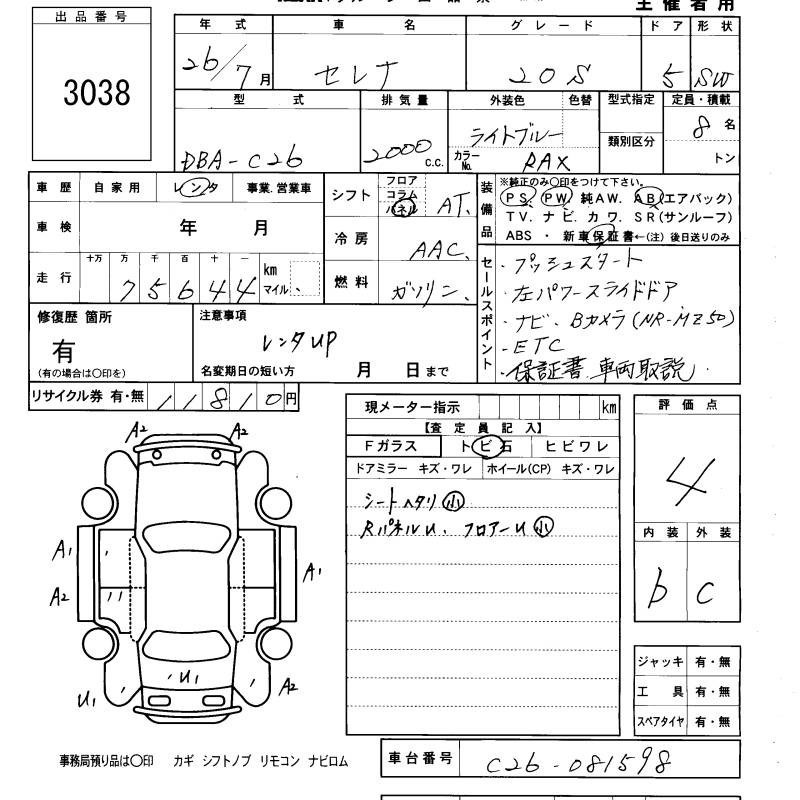 主催者用
出品番号
3038
年式 車名 グレード ドア 形状
26/7月 セレナ 20S 5 SW
型式 排気量 外装色 色替 型式指定 定員・積載
DBA-C26 2000c.c. ライトブルー カラーNo. RAX 類別区分 8名
トン
車歴 自家用 レンタ 事業.営業車
車検 年 月
走行 十万 万 千 百 十 一 km マイル
75644
シフト フロア コラム パネル AT.
冷房 AAC.
燃料 ガソリン.
装備品 ※純正のみ〇印をつけて下さい。
PS. PW. 純AW. AB(エアバック)
TV. ナビ. カワ. SR(サンルーフ)
ABS ・ 新車保証書←(注)後日送りのみ
セールスポイント
・プッシュスタート
・左パワースライドドア
・ナビ、Bカメラ(NR-MZ50)
・ETC
・保証書 車両取説
修復歴 箇所
有
(有の場合は〇印を)
注意事項
レンタUP
名変期日の短い方 月 日まで
リサイクル券 有・無 11810円
現メーター指示 km
【査定員記入】
Fガラス トビ石 ヒビワレ
ドアミラー キズ・ワレ ホイール(CP) キズ・ワレ
シートヘタリ 小
RパネルU. フロアーU 小
評価点
4
内装 外装
b C
A2 A2
A1
A1
A2
U1 U1 A2
ジャッキ 有・無
工具 有・無
スペアタイヤ 有・無
事務局預り品は〇印 カギ シフトノブ リモコン ナビロム
車台番号 C26-081598